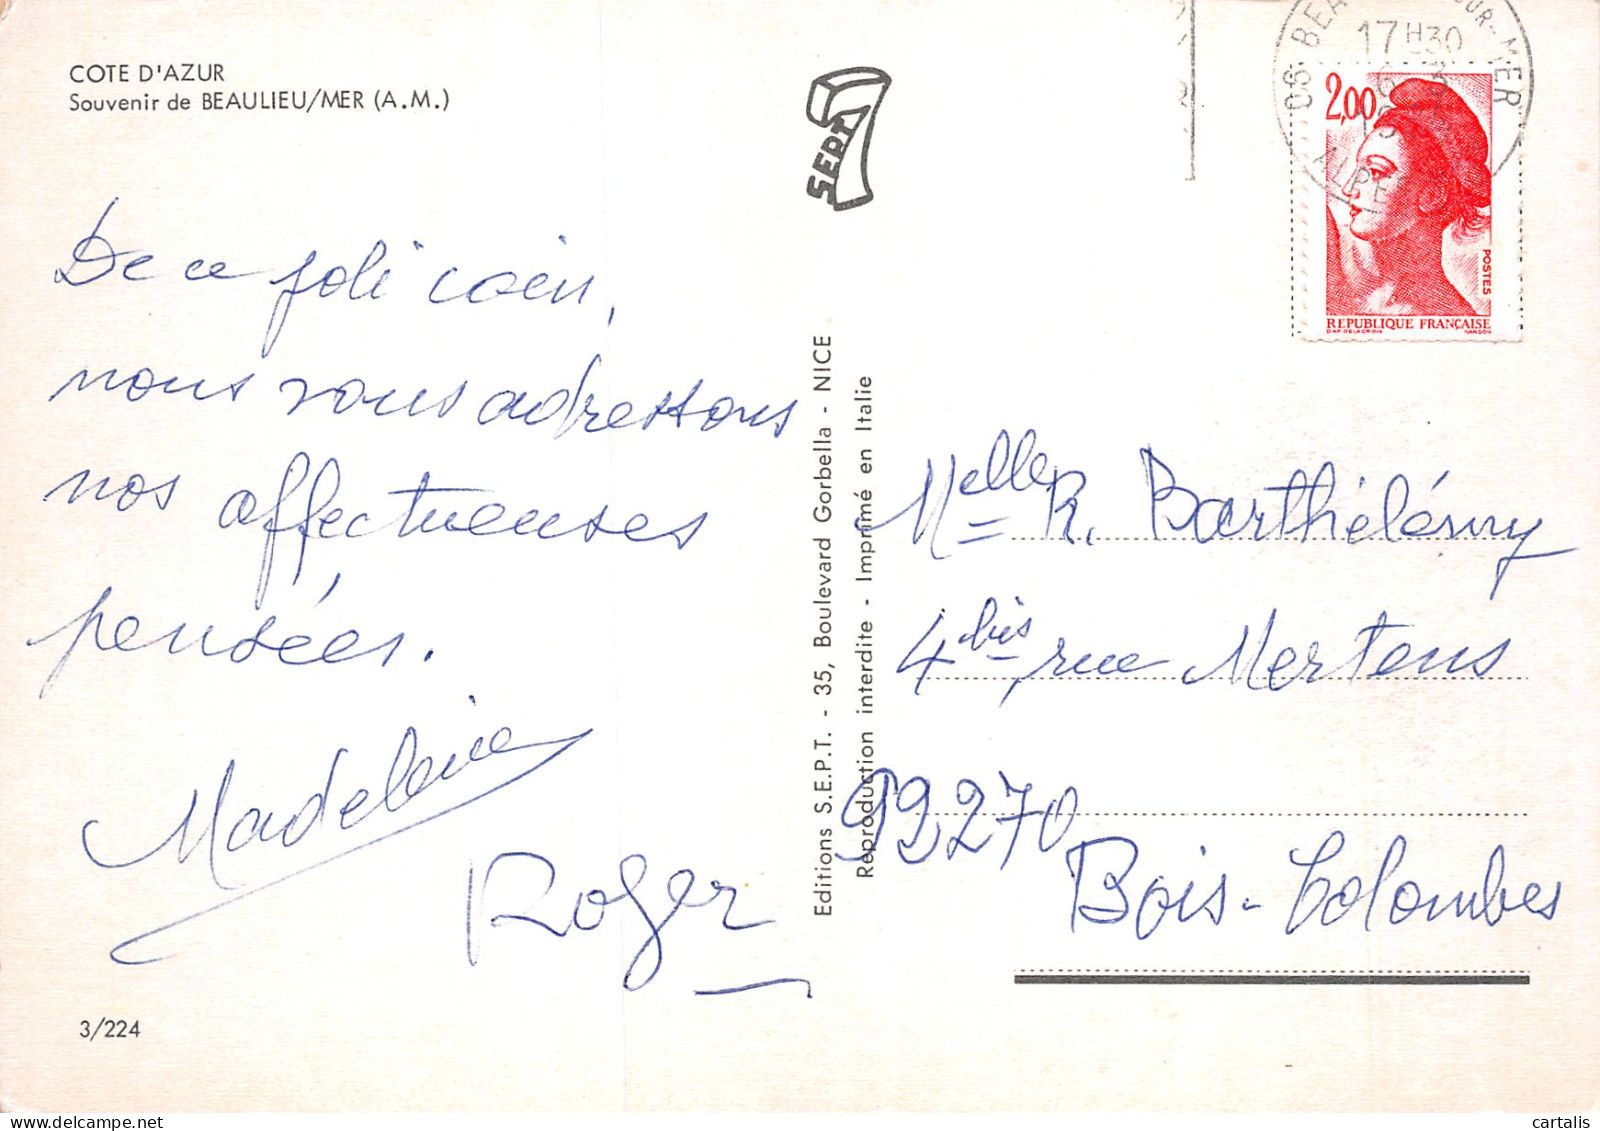 COTE D'AZUR
Souvenir de BEAULIEU/MER (A.M.)
De ce joli coin,
nous vous adressons
nos affectueuses
pensées.
Madeleine
Roger
3/224
SEPT
Editions S.E.P.T. - 35, Boulevard Gorbella - NICE
Reproduction interdite - Imprimé en Italie
17H30
06 BEA UR-MER
ALPE
2,00
POSTES
REPUBLIQUE FRANÇAISE
D'AP. DELACROIX GANDON
Melle R. Barthélémy
4 bis, rue Mertens
92270
Bois-Colombes
cartalis